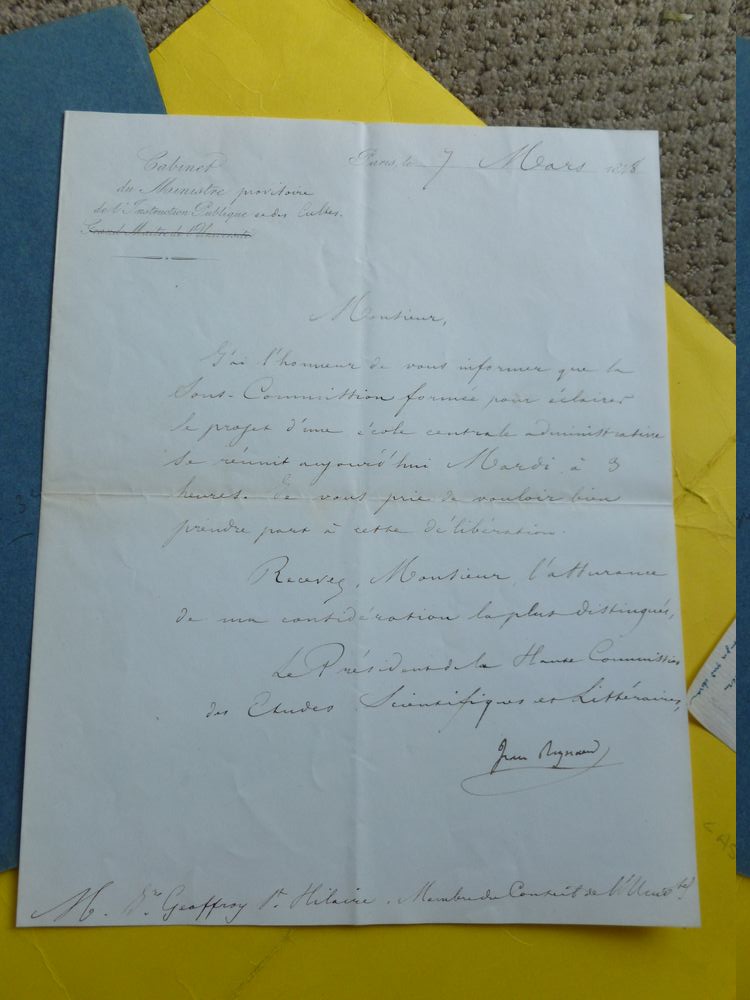 Cabinet
du Ministre provisoire
de l'Instruction Publique et des Cultes.
Grand Maître de l'Université
Paris, le 7 Mars 1848
Monsieur,
J'ai l'honneur de vous informer que la
Sous-Commission formée pour éclairer
le projet d'une école centrale administrative
se réunit aujourd'hui Mardi à 3
heures. Je vous prie de vouloir bien
prendre part à cette délibération.
Recevez, Monsieur, l'assurance
de ma considération la plus distinguée,
Le Président de la Haute Commission
des Etudes Scientifiques et Littéraires,
Jean Reynaud
M. Geoffroy St. Hilaire, Membre du Conseil de l'Univté